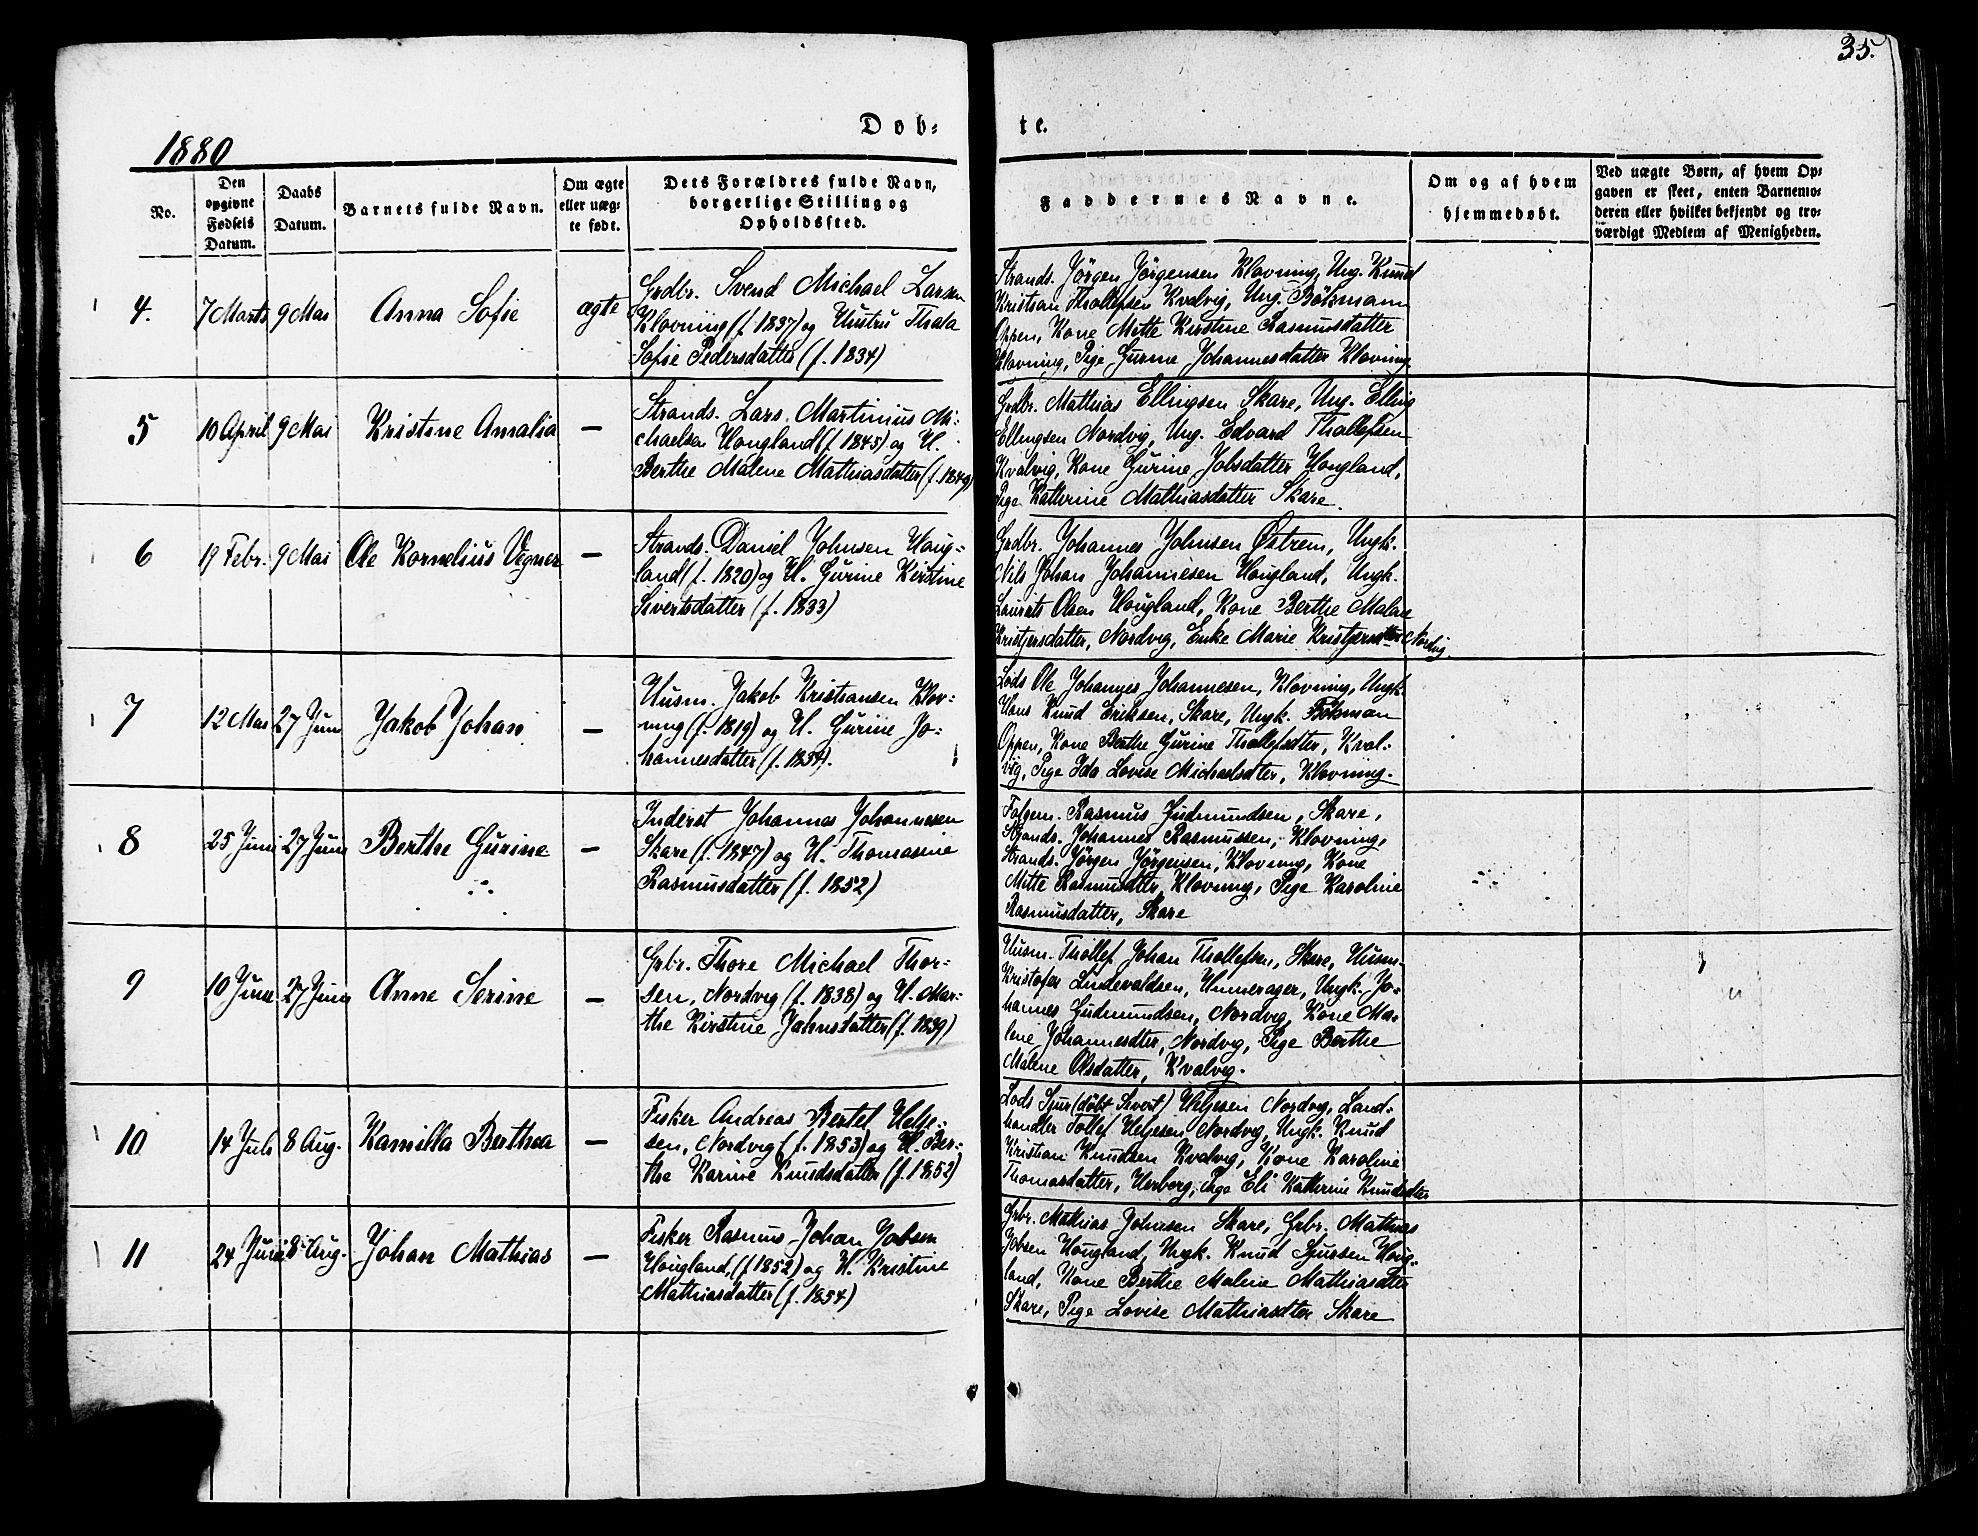 35.
Døb- te.
1880
No.
Den
opgivne
Fødsels
Datum.
Daabs
Datum.
Barnets fulde Navn.
Om ægte
eller uæg-
te født.
Dets Forældres fulde Navn,
borgerlige Stilling og
Opholdssted.
Faddernes Navne.
Om og af hvem
hjemmedøbt.
Ved uægte Børn, af hvem Op-
gaven er skeet, enten Barnemo-
deren eller hvilket bekjendt og tro-
værdigt Medlem af Menigheden.
4. 7 Marts 9 Mai Anna Sofie ægte
Grdbr. Svend Michael Larsen
Klovning (f. 1837) og Hustru Thala
Sofie Pedersdatter (f. 1834)
Strands. Jørgen Jørgensen Klovning, Ung. Knud
Kristian Thollefsen Kvalvig, Ung. Bökmann
Oppen, Kone Mette Kirstine Rasmusdatter
Klovning, Pige Gurine Johannesdatter Klovning
5 10 April 9 Mai Kristine Amalia —
Strands. Lars Martinius Mi-
chaelsen Hougland (f. 1845) og H.
Berthe Malene Mathiasdatter (f. 1849)
Grdbr. Mathias Ellingsen Skare, Ung. Elling
Ellingsen Nordvig, Ung. Edvard Thollefsen
Kvalvig, Kone Gurine Jobsdatter Hougland,
Pige Kathrine Mathiasdatter Skare.
6 19 Febr. 9 Mai Ole Kornelius Vegner —
Strands. Daniel Johnsen Houg-
land (f. 1820) og H. Gurine Kirstine
Sivertsdatter (f. 1833)
Grdbr. Johannes Johnsen Østrem, Ungk.
Nils Johan Johannesen Hougland, Ungk.
Laurits Olsen Hougland, Kone Berthe Malene
Kristjersdatter, Nordvig, Enke Marie Nordvig
7 12 Mai 27 Juni Jakob Johan —
Husm. Jakob Kristiansen Klov-
ning (f. 1819) og H. Gurine Jo-
hannesdatter (f. 1834).
Lods Ole Johannes Johannesen, Klovning, Ungk.
Hans Knud Eriksen, Skare, Ungk. Bökman
Oppen, Kone Berthe Gurine Thollefsdtter, Kval-
vig, Pige Ida Lovise Michaelsdtter, Klovning.
8 25 Juni 27 Juni Berthe Gurine —
Inderst Johannes Johannesen
Skare (f. 1847) og H. Thomasine
Rasmusdatter (f. 1852)
Folgem. Rasmus Gudmundsen, Skare,
Strands. Johannes Rasmussen, Klovning,
Strands. Jørgen Jørgensen, Klovning, Kone
Mette Rasmusdtter, Klovning, Pige Karoline
Rasmusdatter, Skare
9 10 Juni 27 Juni Anne Serine —
Grbr. Thore Michael Thor-
sen, Nordvig (f. 1838) og H. Mar-
the Kirstine Jahnsdatter (f. 1839)
Husm. Thollef Johan Thollefsen, Skare, Husm.
Kristofer Lindevaldsen, Hunnerager, Ungk. Jo-
hannes Gudmundsen, Nordvig, Kone Ma-
lene Johannesdtter, Nordvig, Pige Berthe
Malene Olsdatter, Kvalvig.
10 14 Juli 8 Aug. Kamilla Berthea —
Fisker Andreas Bertel Helje-
sen, Nordvig (f. 1853) og H. Ber-
the Karine Knudsdatter (f. 1852)
Lods Sjur (døbt Sivert) Heljesen Nordvig, Land-
handler Tollef Heljesen Nordvig, Ungk. Knud
Kristian Knudsen Kvalvig, Kone Karoline
Thomasdatter, Pige Eli Kathrine Knudsdtter
11 24 Juni 8 Aug. Johan Mathias —
Fisker Rasmus Johan Jobsen
Hougland, (f 1852) og H. Kristine
Mathiasdatter (f. 1854)
Grbr. Mathias Johnsen Skare, Grbr. Mathias
Jobsen Hougland, Ungk. Knud Sjursen Houg-
land, Kone Berthe Malene Mathiasdtter
Skare, Pige Lovise Mathiasdtter Skare